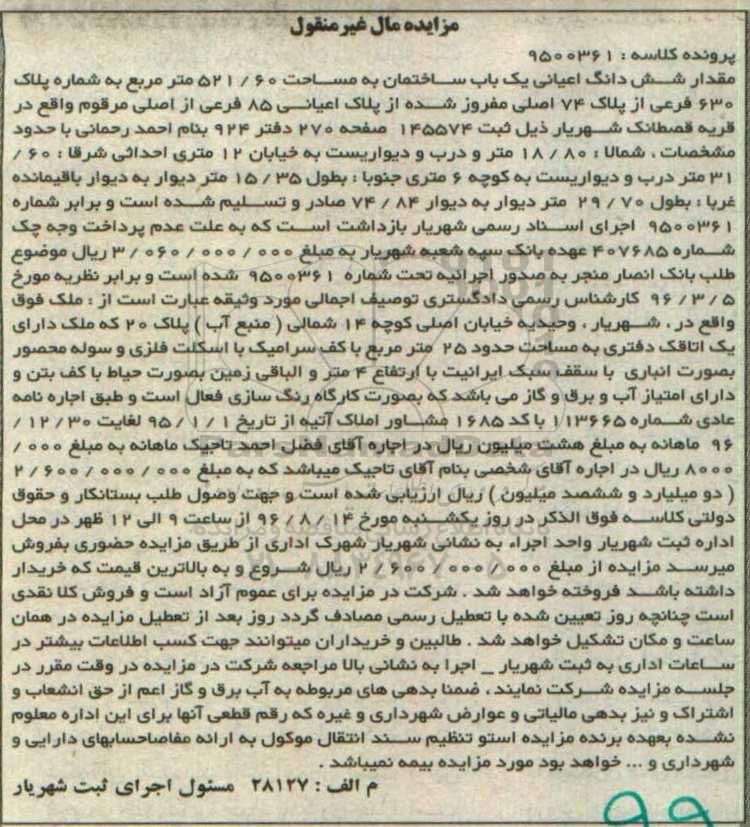 مزایده مال غیرمنقول
پرونده کلاسه : ۹۵۰۰۳۶۱
مقدار شش دانگ اعیانی یک باب ساختمان به مساحت ۵۲۱/۶۰ متر مربع به شماره پلاک
۶۳۰ فرعی از پلاک ۷۴ اصلی مفروز شده از پلاک اعیانی ۸۵ فرعی از اصلی مرقوم واقع در
قریه قصطانک شهریار ذیل ثبت ۱۴۵۵۷۴ صفحه ۲۷۰ دفتر ۹۲۴ بنام احمد رحمانی با حدود
مشخصات ، شمالا : ۱۸/۸۰ متر و درب و دیواریست به خیابان ۱۲ متری احداثی شرقا : ۶۰/
۳۱ متر درب و دیواریست به کوچه ۶ متری جنوبا : بطول ۱۵/۳۵ متر دیوار به دیوار باقیمانده
غربا : بطول ۲۹/۷۰ متر دیوار به دیوار ۷۴/۸۴ صادر و تسلیم شده است و برابر شماره
۹۵۰۰۳۶۱ اجرای اسناد رسمی شهریار بازداشت است که به علت عدم پرداخت وجه چک
شماره ۴۰۷۶۸۵ عهده بانک سپه شعبه شهریار به مبلغ ۳/۰۶۰/۰۰۰/۰۰۰ ریال موضوع
طلب بانک انصار منجر به صدور اجرائیه تحت شماره ۹۵۰۰۳۶۱ شده است و برابر نظریه مورخ
۹۶/۳/۵ کارشناس رسمی دادگستری توصیف اجمالی مورد وثیقه عبارت است از : ملک فوق
واقع در ، شهریار ، وحیدیه خیابان اصلی کوچه ۱۴ شمالی ( منبع آب ) پلاک ۲۰ که ملک دارای
یک اتاقک دفتری به مساحت حدود ۲۵ متر مربع با کف سرامیک با اسکلت فلزی و سوله محصور
بصورت انباری با سقف سبک ایرانیت با ارتفاع ۴ متر و الباقی زمین بصورت حیاط با کف بتن و
دارای امتیاز آب و برق و گاز می باشد که بصورت کارگاه رنگ سازی فعال است و طبق اجاره نامه
عادی شماره ۱۱۳۶۶۵ با کد ۱۶۸۵ مشاور املاک آتیه از تاریخ ۹۵/۱/۱ لغایت ۱۲/۳۰/
۹۶ ماهانه به مبلغ هشت میلیون ریال در اجاره آقای فضل احمد تاجیک ماهانه به مبلغ ۰۰۰/
۸۰۰۰ ریال در اجاره آقای شخصی بنام آقای تاجیک میباشد که به مبلغ ۲/۶۰۰/۰۰۰/۰۰۰
( دو میلیارد و ششصد میلیون ) ریال ارزیابی شده است و جهت وصول طلب بستانکار و حقوق
دولتی کلاسه فوق الذکر در روز یکشنبه مورخ ۹۶/۸/۱۴ از ساعت ۹ الی ۱۲ ظهر در محل
اداره ثبت شهریار واحد اجراء به نشانی شهریار شهرک اداری از طریق مزایده حضوری بفروش
میرسد مزایده از مبلغ ۲/۶۰۰/۰۰۰/۰۰۰ ریال شروع و به بالاترین قیمت که خریدار
داشته باشد فروخته خواهد شد . شرکت در مزایده برای عموم آزاد است و فروش کلا نقدی
است چنانچه روز تعیین شده با تعطیل رسمی مصادف گردد روز بعد از تعطیل مزایده در همان
ساعت و مکان تشکیل خواهد شد . طالبین و خریداران میتوانند جهت کسب اطلاعات بیشتر در
ساعات اداری به ثبت شهریار _ اجرا به نشانی بالا مراجعه شرکت در مزایده در وقت مقرر در
جلسه مزایده شرکت نمایند ، ضمنا بدهی های مربوطه به آب برق و گاز اعم از حق انشعاب و
اشتراک و نیز بدهی مالیاتی و عوارض شهرداری و غیره که رقم قطعی آنها برای این اداره معلوم
نشده بعهده برنده مزایده استو تنظیم سند انتقال موکول به ارائه مفاصاحسابهای دارایی و
شهرداری و ... خواهد بود مورد مزایده بیمه نمیباشد .
م الف : ۲۸۱۲۷ مسئول اجرای ثبت شهریار
۹۹